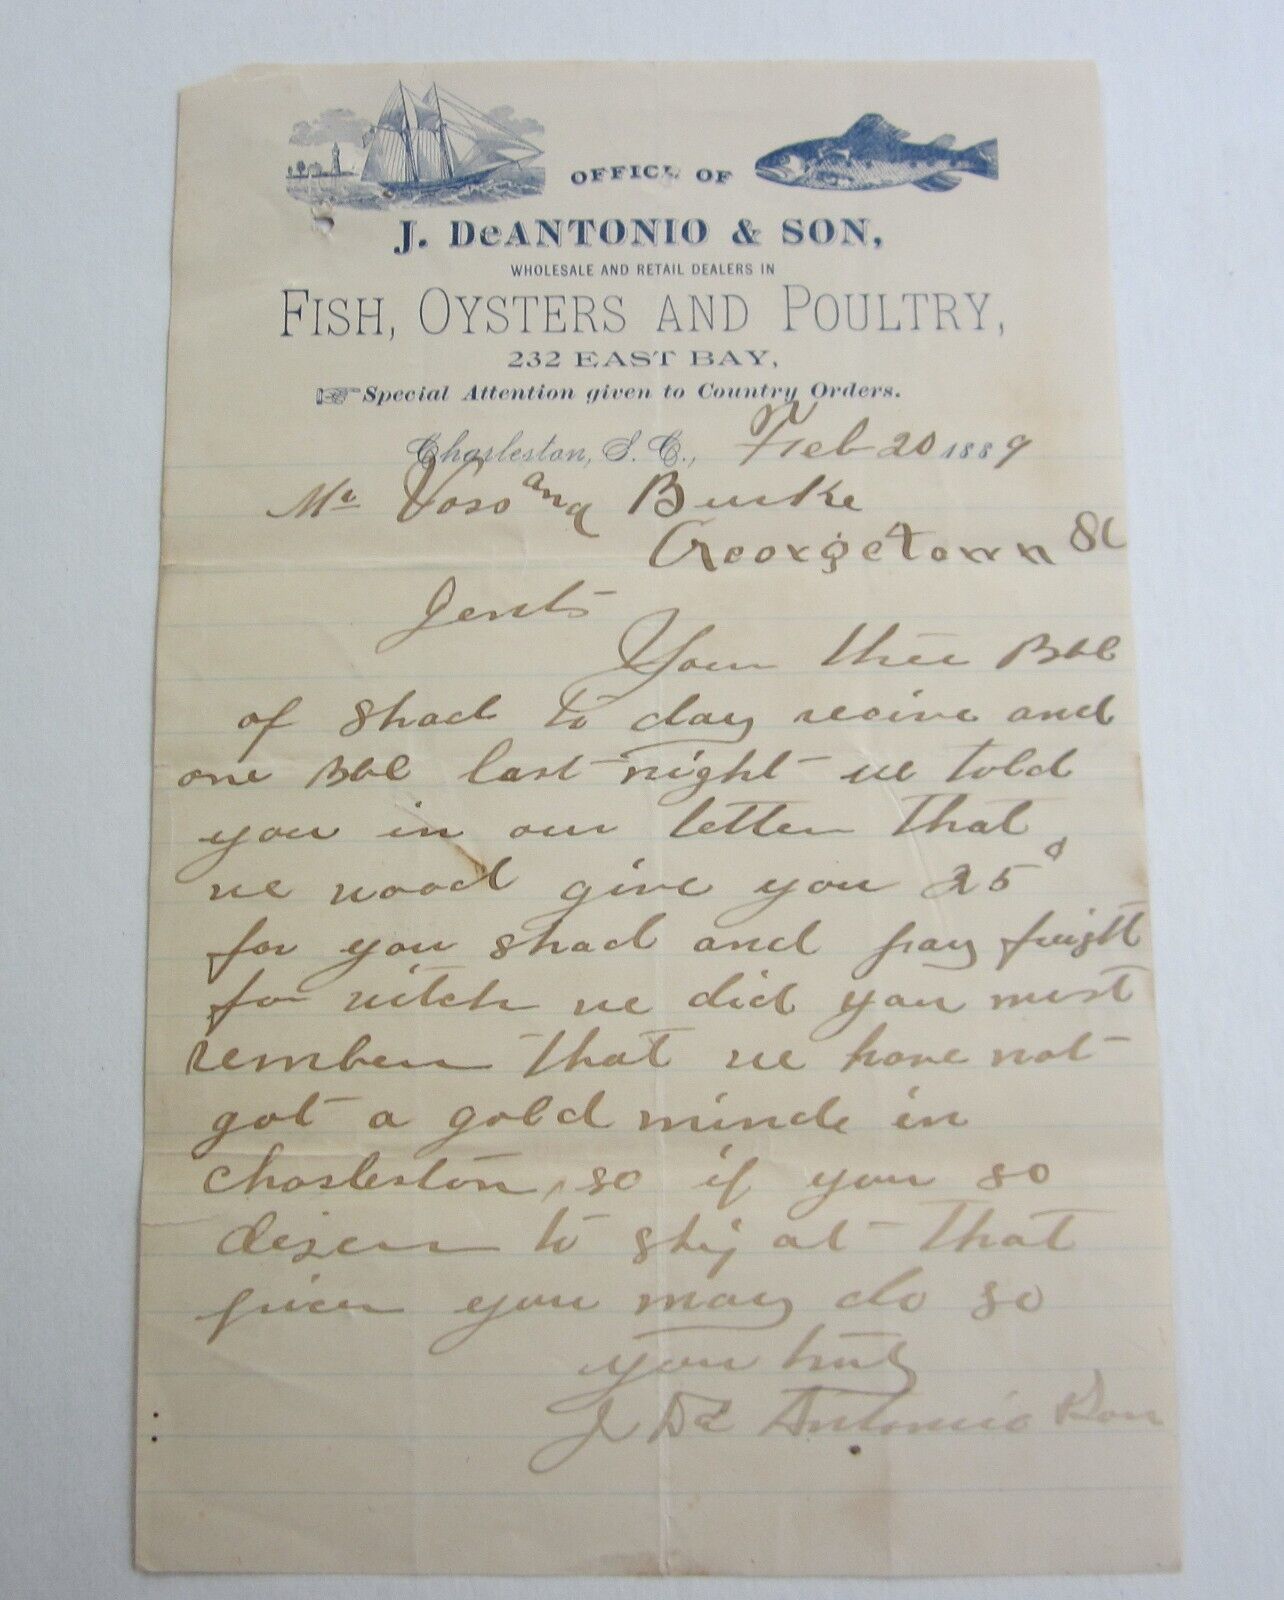 OFFICE OF
J. DeANTONIO & SON,
WHOLESALE AND RETAIL DEALERS IN
FISH, OYSTERS AND POULTRY,
232 EAST BAY,
Special Attention given to Country Orders.
Charleston, S. C., Feb 20 1889
Mr Voso and Burke
Georgetown SC
Gents
Your three Bbl
of shad to day recive and
one Bbl last night we told
you in our letter that
we wood give you 25¢
for you shad and pay freight
for witch we did you must
rember that we have not
got a gold minde in
Charleston, so if you so
to ship at that
prices you may do so
your truly
J De Antonio & Son